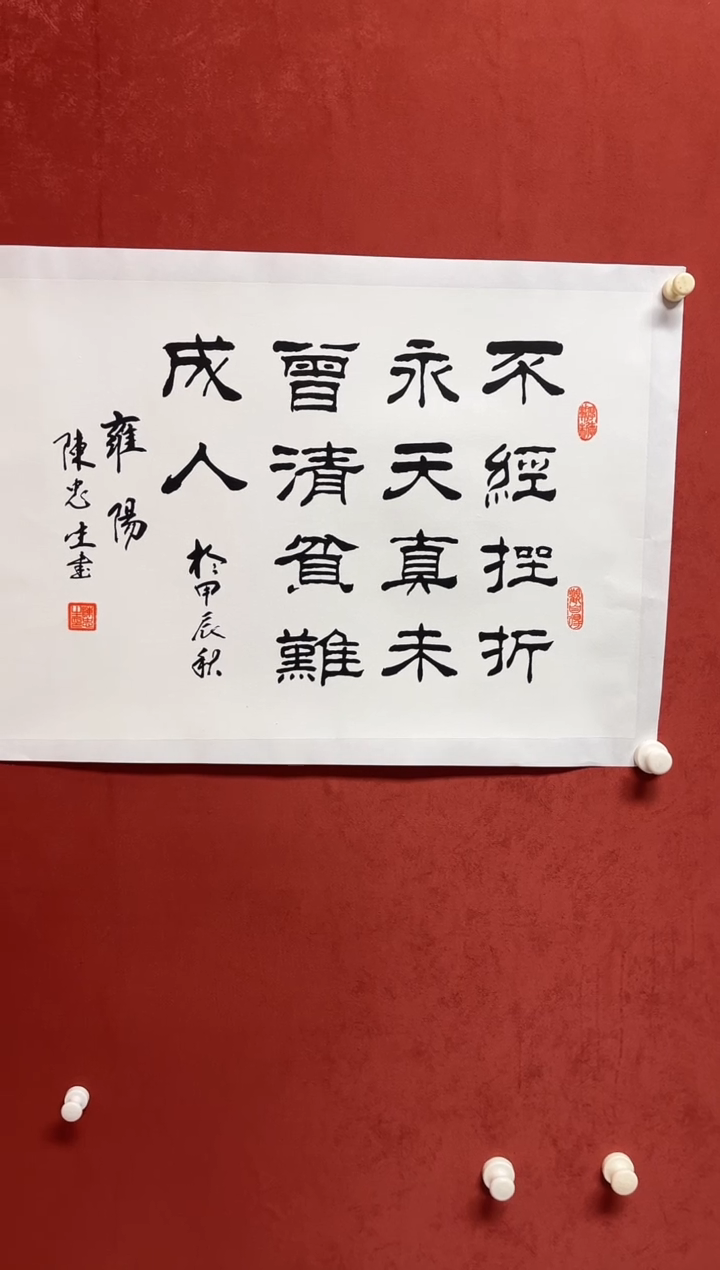 不經挫折
永天真未
曾清貧難
成人
於甲辰秋
雍陽
陳忠生書